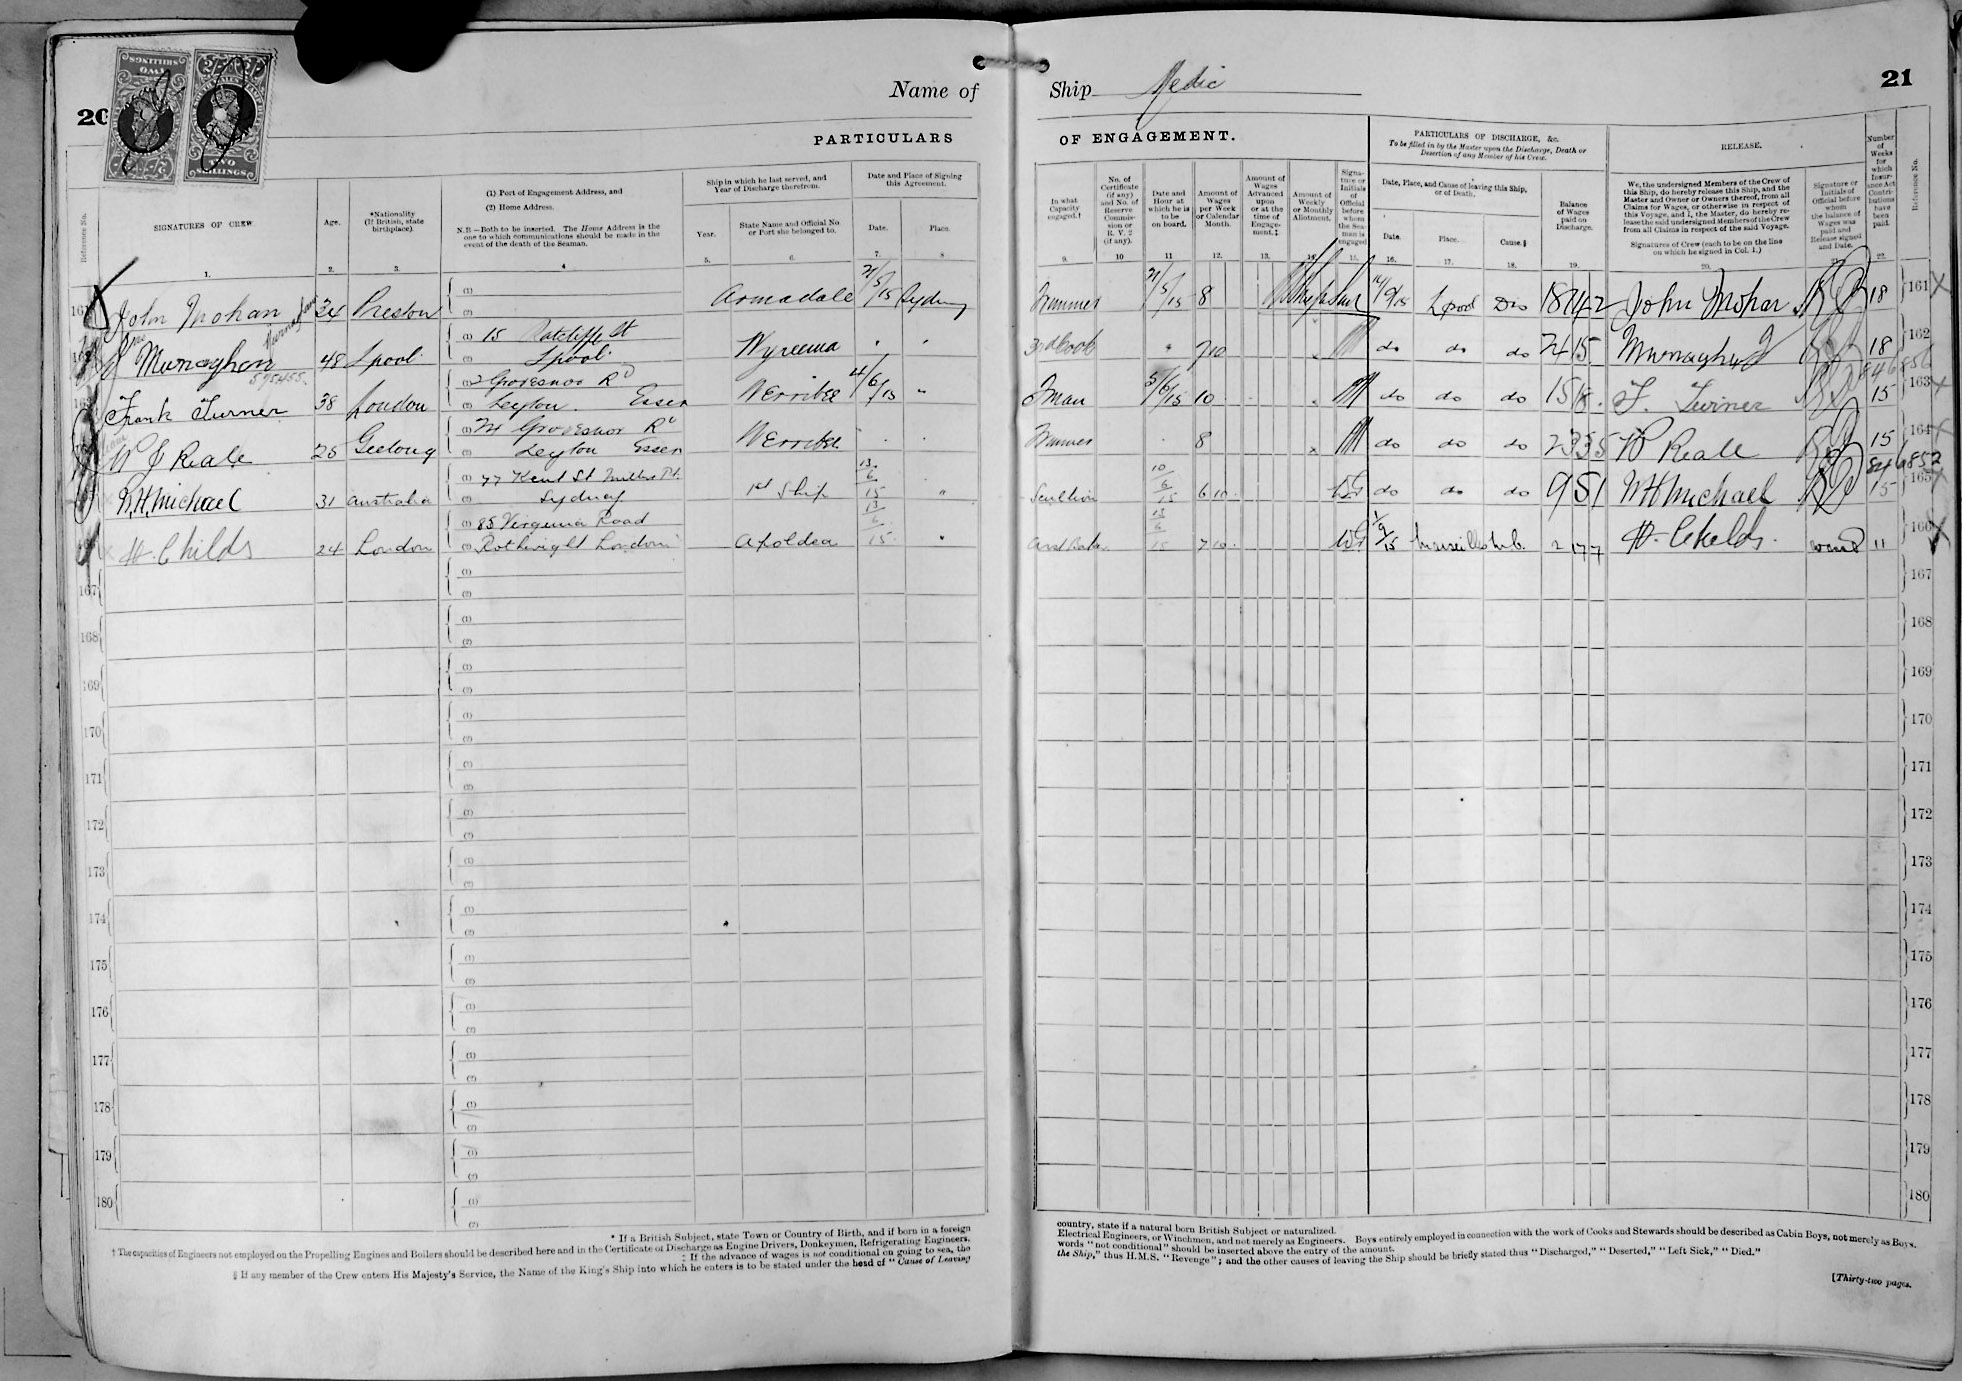 20
TWO SHILLINGS
TWO
SHILLINGS
Name of
Ship Medic
21
PARTICULARS
OF ENGAGEMENT.
PARTICULARS OF DISCHARGE, &c.
To be filled in by the Master upon the Discharge, Death or
Desertion of any Member of his Crew.
RELEASE.
Reference No.
SIGNATURES OF CREW
Age.
*Nationality
(If British, state
birthplace).
(1) Port of Engagement Address, and
(2) Home Address.
N.B—Both to be inserted. The Home Address is the
one to which communications should be made in the
event of the death of the Seaman.
Ship in which he last served, and
Year of Discharge therefrom.
Year.
State Name and Official No
or Port she belonged to.
Date and Place of Signing
this Agreement.
Date.
Place.
In what
Capacity
engaged.†
No. of
Certificate
(if any)
and No. of
Reserve
Commis-
sion or
R. V. 2
(if any).
Date and
Hour at
which he is
to be
on board.
Amount of
Wages
per Week
or Calendar
Month.
Amount of
Wages
Advanced
upon
or at the
time of
Engage-
ment.‡
Amount of
Weekly
or Monthly
Allotment.
Signa-
ture or
Initials
of
Official
before
whom
the Sea-
man is
engaged
Date, Place, and Cause of leaving this Ship,
or of Death.
Date.
Place.
Cause.§
Balance
of Wages
paid on
Discharge.
We, the undersigned Members of the Crew of
this Ship, do hereby release this Ship, and the
Master and Owner or Owners thereof, from all
Claims for Wages, or otherwise in respect of
this Voyage, and I, the Master, do hereby re-
lease the said undersigned Members of the Crew
from all Claims in respect of the said Voyage.
Signatures of Crew (each to be on the line
on which he signed in Col. 1.)
Signature or
Initials of
Official before
whom
the balance of
Wages was
paid and
Release signed
and Date.
Number
of
Weeks
for
which
Insur-
ance Act
Contri-
butions
have
been
paid.
Reference No.
1. 2. 3. 4 5. 6. 7. 8 9. 10 11. 12. 13. 14. 15. 16. 17. 18. 19. 20. 21. 22.
John Mohan 34 Preston Armadale 21/5/15 Sydney Trimmer 21/5/15 8 14/9/15 Lpool Dis John Mohan 18 161
J Munaghan 48 Lpool 15 Ratcliffe St Wyreema 3rd Cook 7 10 do do do 24 15 Munaghan J 18 162
595455. Lpool 846856
Frank Turner 38 London Grovesnor Rd Werribee 4/6/15 " F man 5/6/15 10 do do do 15 8 F. Turner 15 163
Leyton. Essex
W J Reale 25 Geelong 74 Grovesnor Rd Werribee Trimmer 8 do do do 23 3 5 W Reale 15 164
Leyton Essex 846852
W.H. Michael 31 Australia 77 Kent St Millers Pt. 1st Ship 13/6/15 " Scullion 10/6/15 6 10 do do do 9 5 1 W H Michael 15 165
Sydney
H. Childs 24 London 85 Virginia Road Apoldea 13/6/15 " Asst Baker 13/6/15 7 10 1/9/15 Marseilles 2 17 7 H. Childs. 11 166
Rothwight London
167 167
168 168
169 169
170 170
171 171
172 172
173 173
174 174
175 175
176 176
177 177
178 178
179 179
180 180
* If a British Subject, state Town or Country of Birth, and if born in a foreign
country, state if a natural born British Subject or naturalized.
† The capacities of Engineers not employed on the Propelling Engines and Boilers should be described here and in the Certificate of Discharge as Engine Drivers, Donkeymen, Refrigerating Engineers,
Electrical Engineers, or Winchmen, and not merely as Engineers. Boys entirely employed in connection with the work of Cooks and Stewards should be described as Cabin Boys, not merely as Boys.
‡ If the advance of wages is not conditional on going to sea, the
words "not conditional" should be inserted above the entry of the amount.
§ If any member of the Crew enters His Majesty's Service, the Name of the King's Ship into which he enters is to be stated under the head of "Cause of Leaving
the Ship," thus H.M.S. "Revenge"; and the other causes of leaving the Ship should be briefly stated thus "Discharged," "Deserted," "Left Sick," "Died."
[Thirty-two pages.